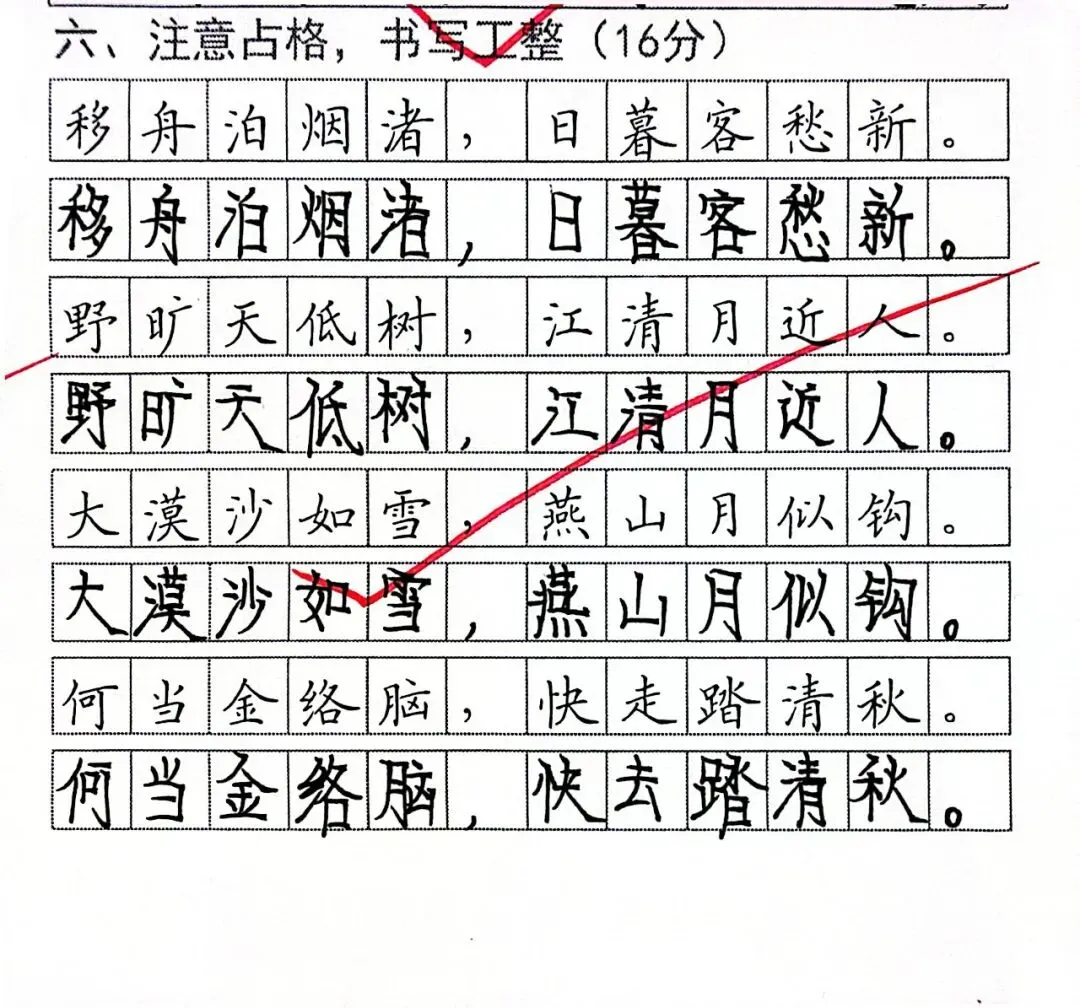 六、注意占格，书写工整（16分）
移舟泊烟渚，日暮客愁新。
移舟泊烟渚，日暮客愁新。
野旷天低树，江清月近人。
野旷天低树，江清月近人。
大漠沙如雪，燕山月似钩。
大漠沙如雪，燕山月似钩。
何当金络脑，快走踏清秋。
何当金络脑，快去踏清秋。